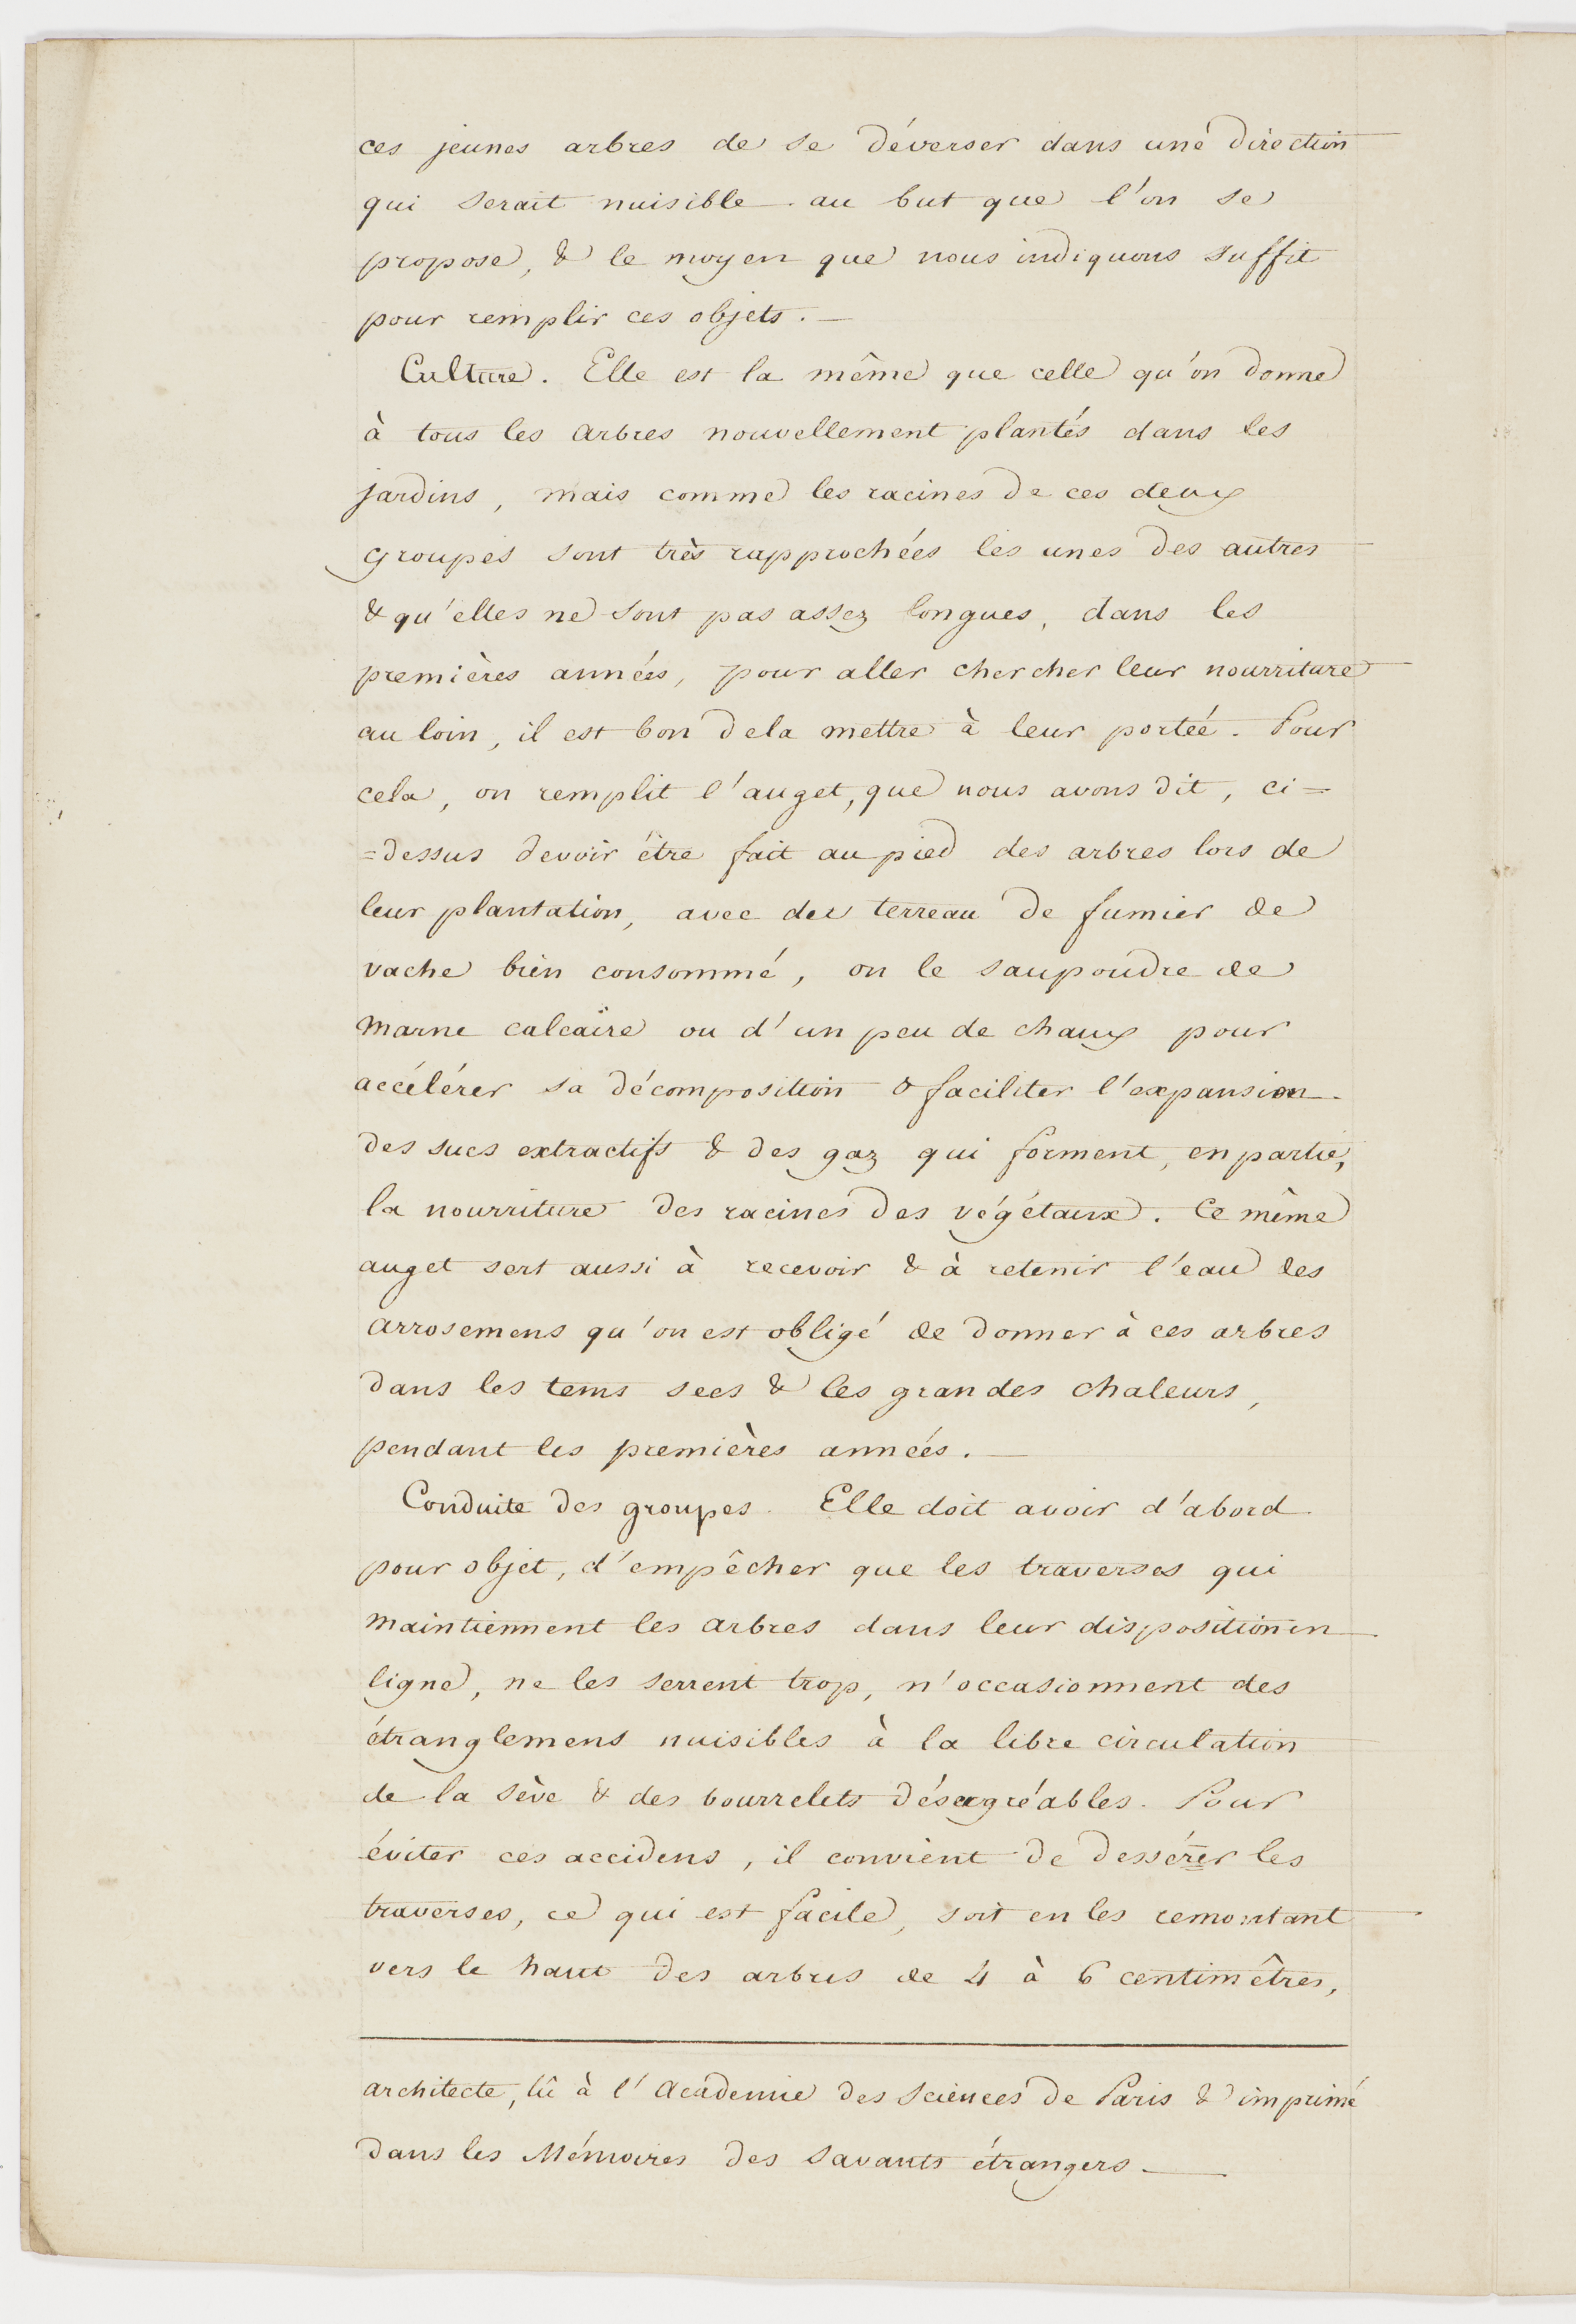 ces jeunes arbres de se déverser dans une direction
qui serait nuisible au but que l'on se
propose, & le moyen que nous indiquons suffit
pour remplir ces objets. —
Culture. Elle est la même que celle qu'on donne
à tous les arbres nouvellement plantés dans les
jardins, mais comme les racines de ces deux
groupes sont très rapprochées les unes des autres
& qu'elles ne sont pas assez longues, dans les
premières années, pour aller chercher leur nourriture
au loin, il est bon de la mettre à leur portée. Pour
cela, on remplit l'auget, que nous avons dit, ci=
=dessus devoir être fait au pied des arbres lors de
leur plantation, avec du terreau de fumier de
vache bien consommé, on le saupoudre de
marne calcaire ou d'un peu de chaux pour
accélérer sa décomposition & faciliter l'expansion
des sucs extractifs & des gaz qui forment, en partie,
la nourriture des racines des végétaux. Ce même
auget sert aussi à recevoir & à retenir l'eau des
arrosemens qu'on est obligé de donner à ces arbres
dans les tems secs & les grandes chaleurs,
pendant les premières années. —
Conduite des groupes. Elle doit avoir d'abord
pour objet, d'empêcher que les traverses qui
maintiennent les arbres dans leur disposition en
ligne, ne les serrent trop, n'occasionnent des
étranglemens nuisibles à la libre circulation
de la sève & des bourrelets désagréables. Pour
éviter ces accidens, il convient de dessérer les
traverses, ce qui est facile, soit en les remontant
vers le haut des arbres de 4 à 6 centimêtres,
architecte, lû à l'Académie des Sciences de Paris & imprimé
dans les Mémoires des Savants étrangers —